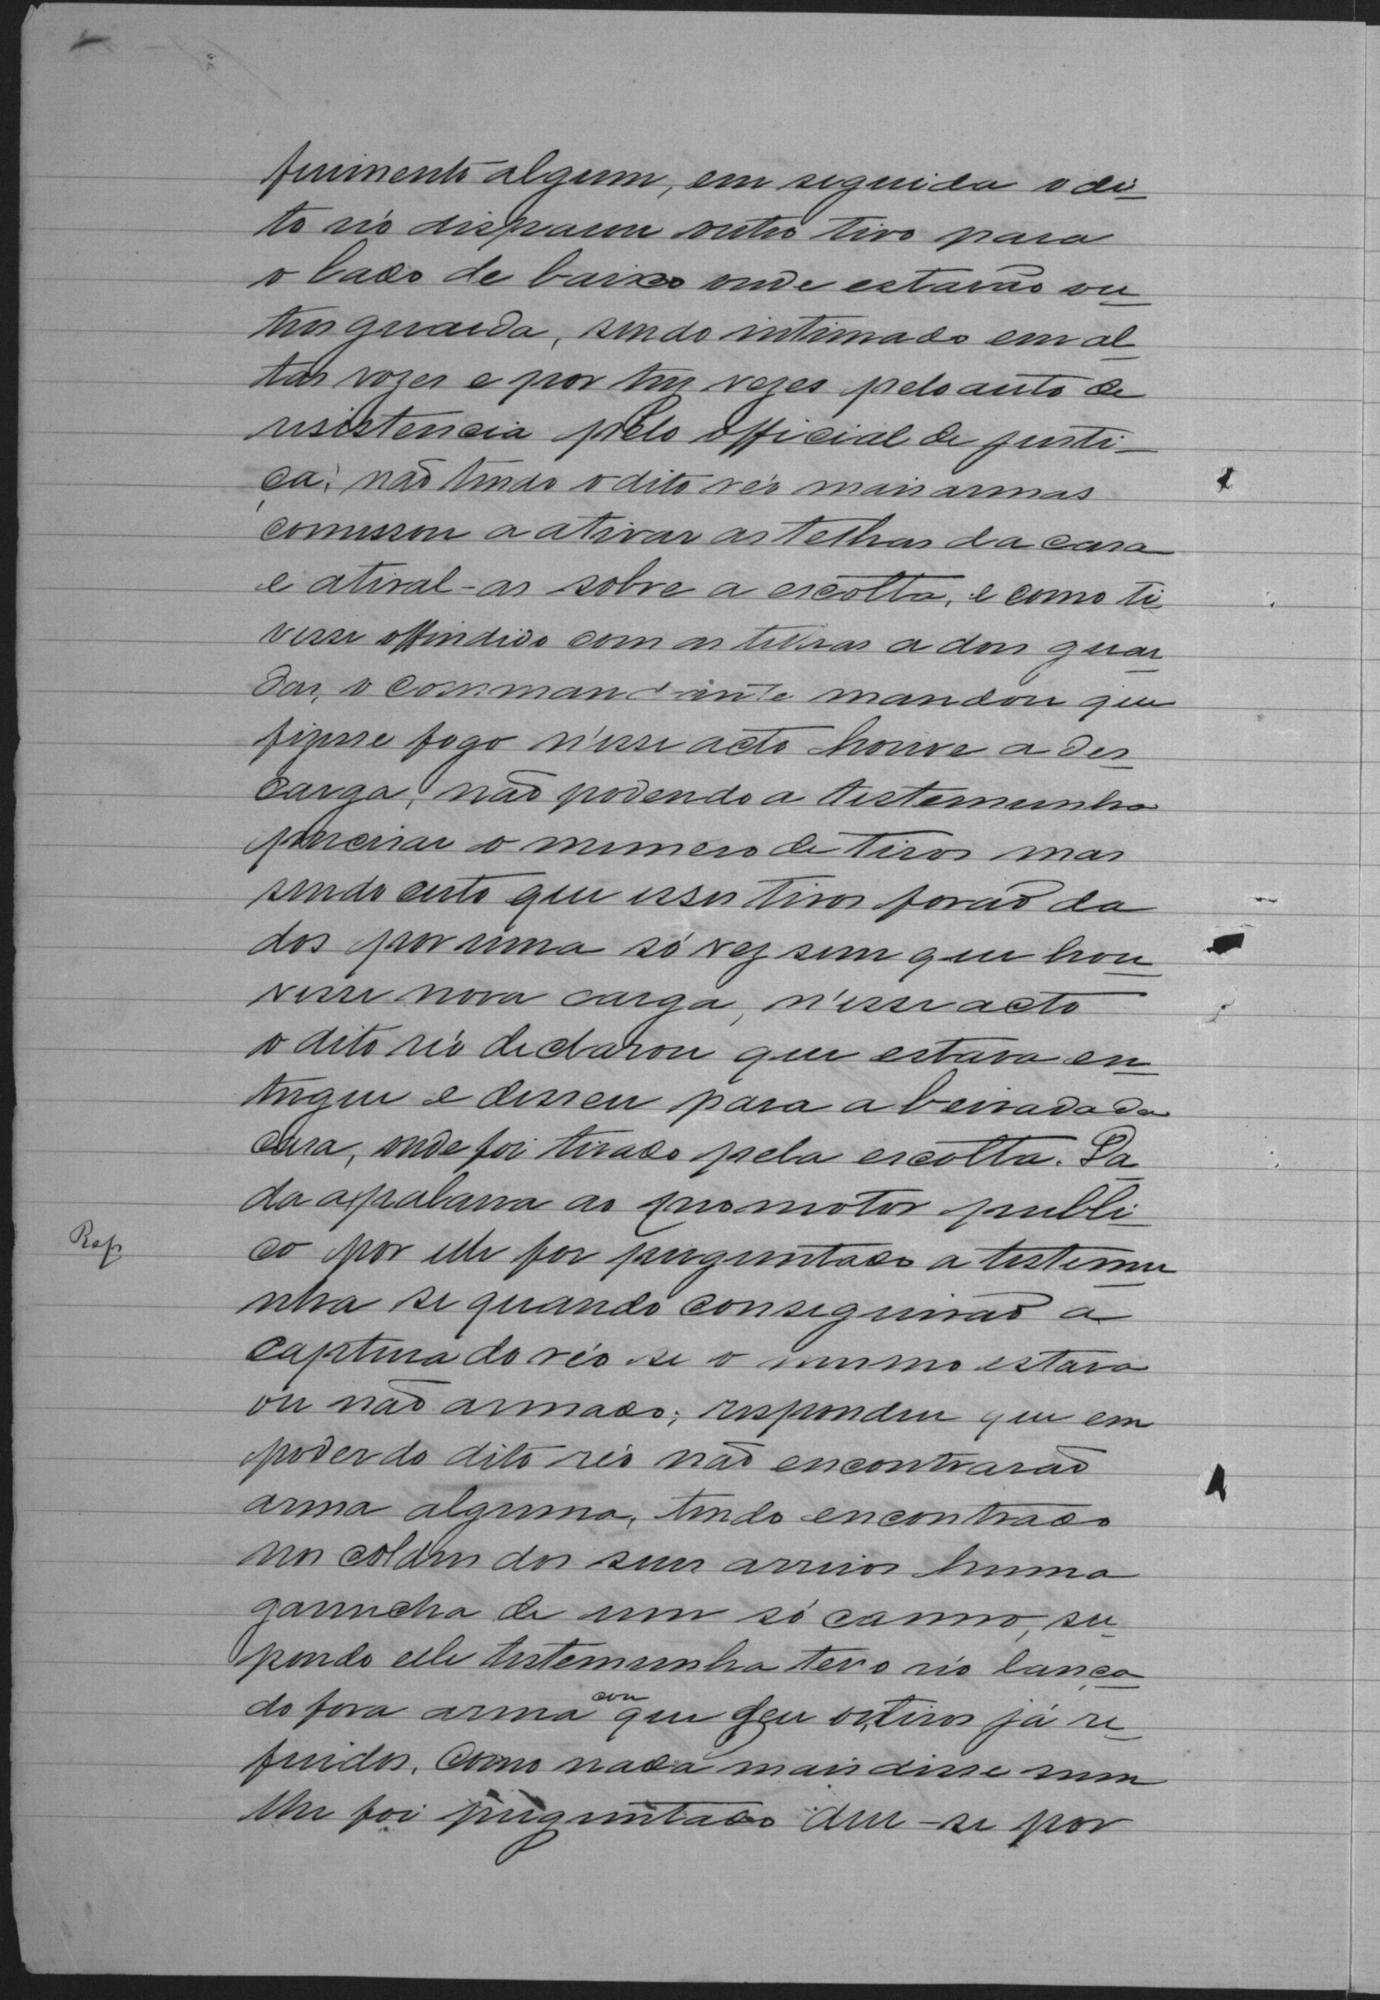 ferimento algum, em seguida o di-
to réo disparou outro tiro para
o lado de baixo onde estavão ou-
tros guarda, sendo intimado em al-
tas vozes e por tres vezes pelo auto de
resistencia pelo official de justi-
ça; não tendo o dito réo mais armas
comessou a ativar as telhas da casa
e atiral-as sobre a escolta, e como ti-
vesse offindido com as telhas a dois guar-
das, o commandante mandou que
fizesse fogo n'esse acto houve a des-
carga, não podendo a testemunha
precisar o numero de tiros mas
sendo certo que esses tiros forão da
dos por uma só vez sem que hou-
vesse nova carga, n'esse acto
o dito réo declarou que estava en-
tregue e desseu para a beirada da
casa, onde foi tirado pela escolta. Da
da a palavra ao promotor publi-
Rep
co por elle foi perguntado a testemu
nha se quando conseguirão a
captura do réo se o mesmo estava
ou não armado; respondeu que em
poder do dito réo não encontrarão
arma alguma, tendo encontrado
nos coldres dos seus arreios huma
garrucha de um só canno, su-
pondo elle testemunha ter o réo lança-
do fora arma com que deu os tiros já re-
feridos. Como nada mais disse nem
lhe foi perguntado deu-se por